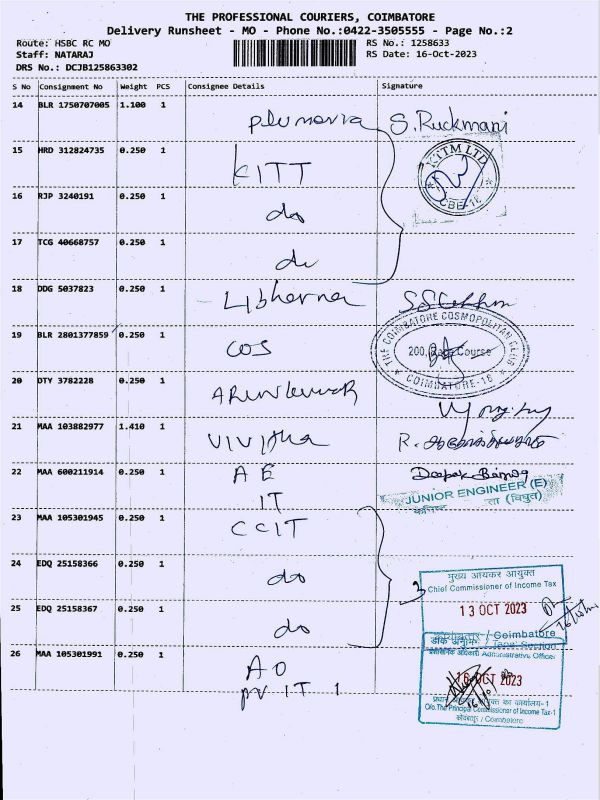 THE PROFESSIONAL COURIERS, COIMBATORE
Delivery Runsheet - MO - Phone No.:0422-3505555 - Page No.:2
Route: HSBC RC MO
RS No.: 1258633
Staff: NATARAJ
RS Date: 16-Oct-2023
DRS No.: DCJB125863302
S No Consignment No Weight PCS Consignee Details Signature
14 BLR 1750707005 1.100 1 Plumeria S. Ruckmani
15 HRD 312824735 0.250 1 KITT
KTTM LTD
CBE-18
16 RJP 3240191 0.250 1 do
17 TCG 40668757 0.250 1 do
18 DDG 5037823 0.250 1
THE COIMBATORE COSMOPOLITAN CLUB
19 BLR 2801377859 0.250 1 COS
200, Race Course
COIMBATORE-18
20 DTY 3782228 0.250 1
21 MAA 103882977 1.410 1 R.
22 MAA 600211914 0.250 1 AE
IT
Deepak
JUNIOR ENGINEER (E)
23 MAA 105301945 0.250 1 CCIT
24 EDQ 25158366 0.250 1 do
3
मुख्य आयकर आयुक्त
Chief Commissioner of Income Tax
25 EDQ 25158367 0.250 1 do
13 OCT 2023
/ Coimbatore
26 MAA 105301991 0.250 1 AO
Pr IT 1
Administrative Officer
16 OCT 2023
O/o. The Principal Commissioner of Income Tax-1
कोयंबत्तूर / Coimbatore